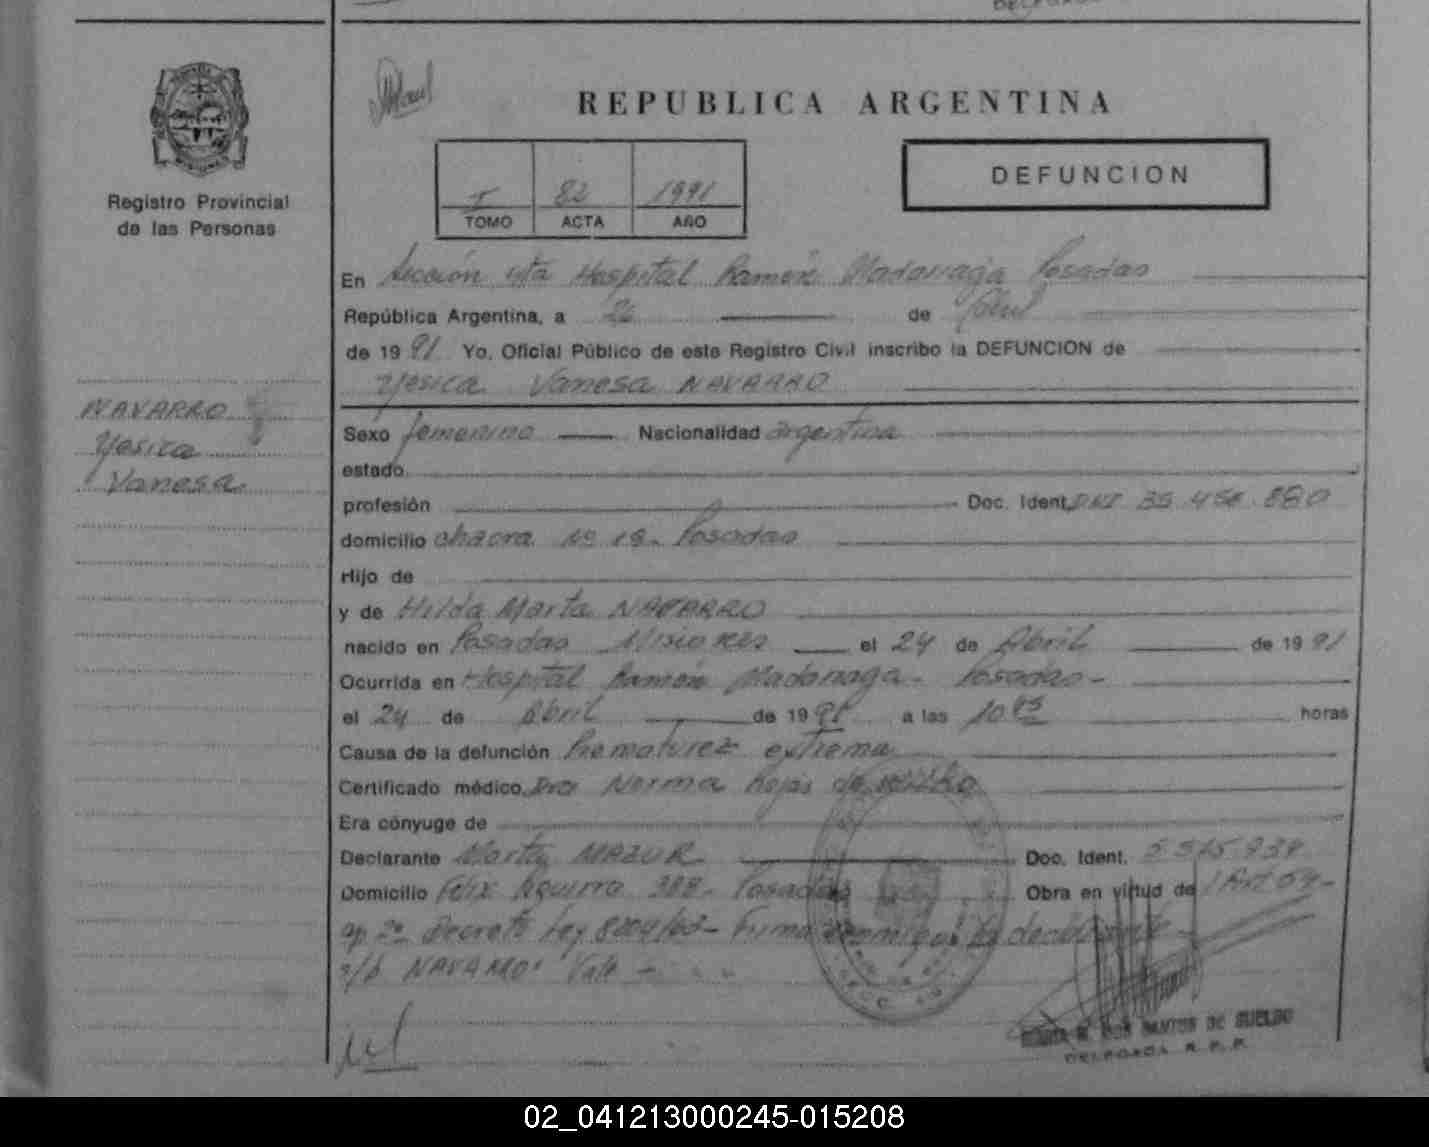 REPUBLICA ARGENTINA
Registro Provincial
de las Personas
I 82 1991
TOMO ACTA AÑO
DEFUNCION
En Sección 4ta Hospital Ramón Madariaga Posadas
República Argentina, a 26 de Abril
de 1991 Yo, Oficial Público de este Registro Civil inscribo la DEFUNCION de
Yesica Vanesa NAVARRO
NAVARRO
Yesica
Vanesa
Sexo femenino Nacionalidad argentina
estado
profesión Doc. Ident. DNI 35.456.880
domicilio chacra Nº 18- Posadas
Hijo de
y de Hilda Marta NAVARRO
nacido en Posadas Misiones el 24 de Abril de 1991
Ocurrida en Hospital Ramón Madariaga- Posadas-
el 24 de Abril de 1991 a las 10 45 horas
Causa de la defunción Prematurez extrema
Certificado médico Dra Norma Rojas de
Era cónyuge de
Declarante Marta MAZUR Doc. Ident.
Domicilio Félix Aguirre 388- Posadas Obra en virtud de Art 64-
ap 2º Decreto Ley 8204/63- Firma conmigo la declarante-
s/b NAVARRO: Vale-
DOS SANTOS DE SUELDO
DELEGADA R. P. P.
02_041213000245-015208